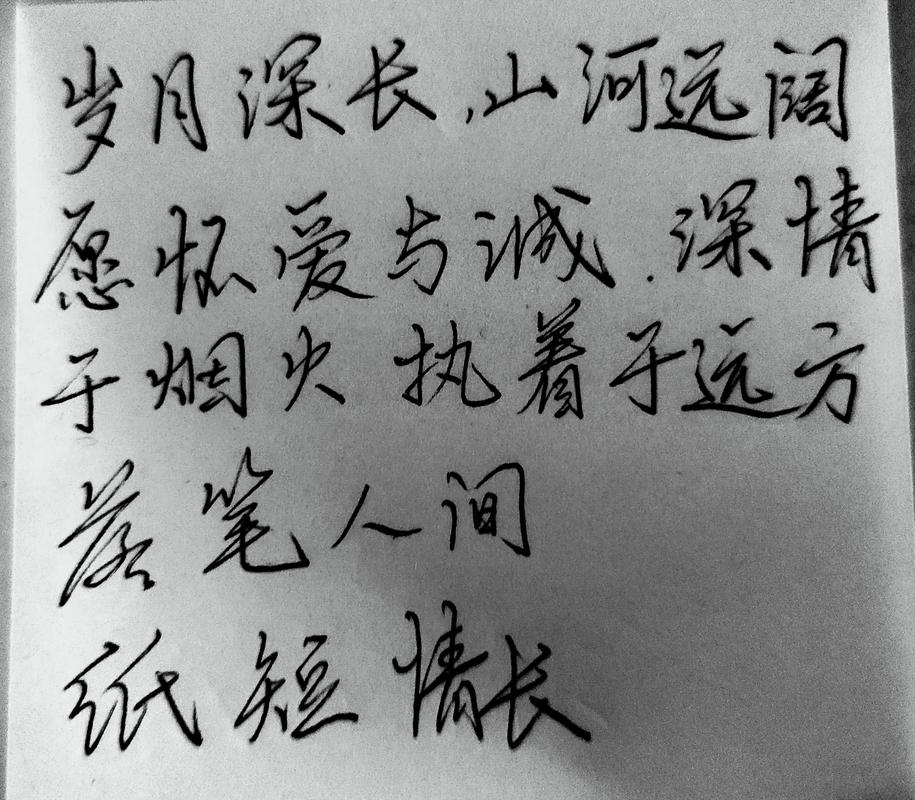 岁月深长,山河远阔
愿怀爱与诚.深情
于烟火 执着于远方
落笔人间
纸短情长